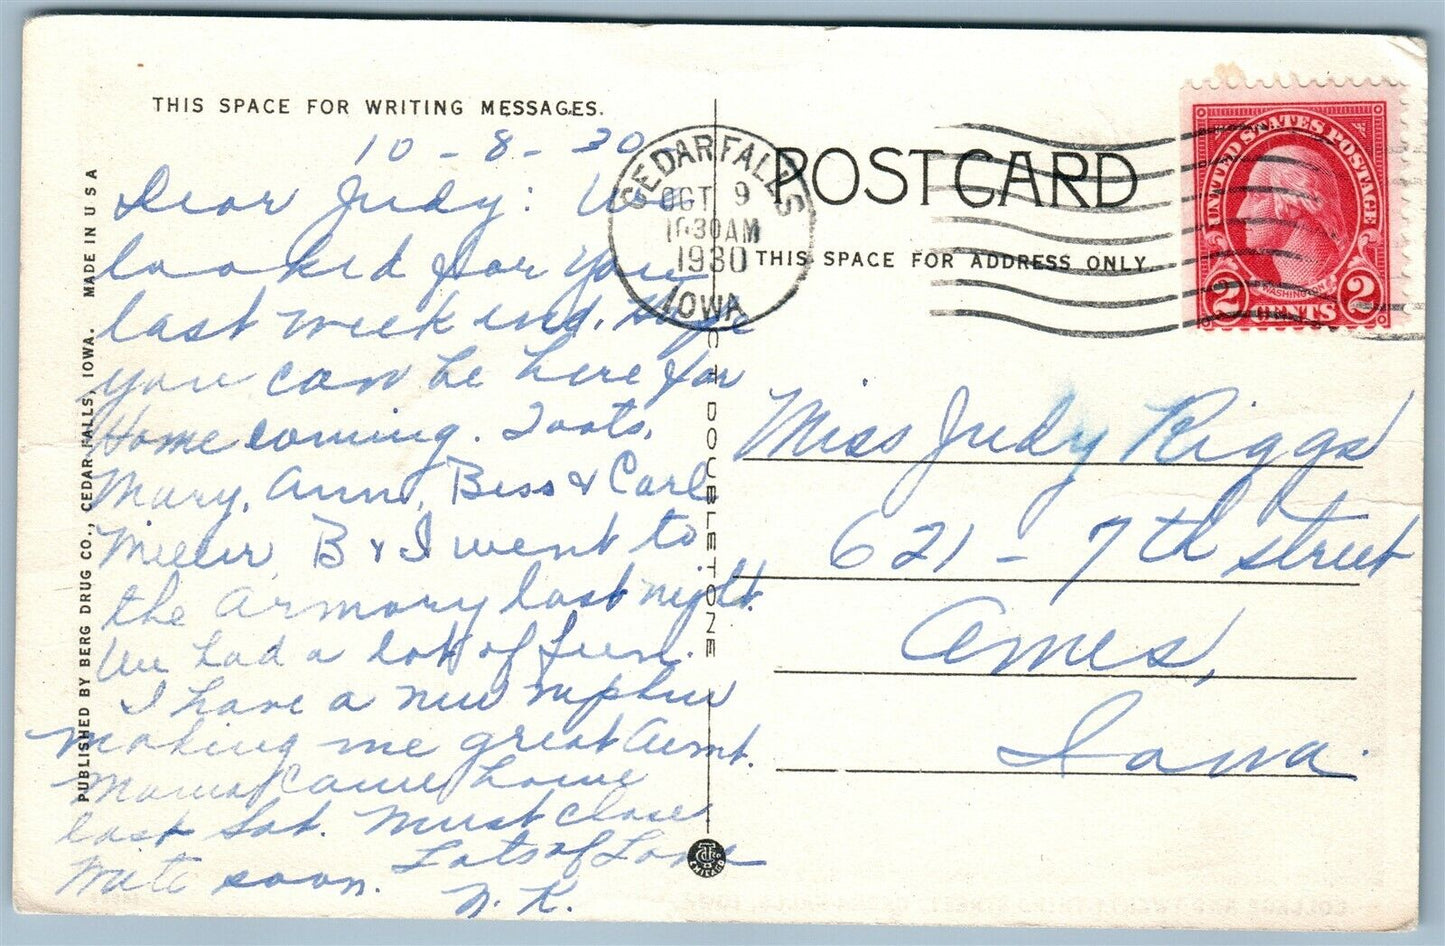 THIS SPACE FOR WRITING MESSAGES.
10-8-30
Dear Judy: We
looked for you
last week end. Hope
you can be here for
Homecoming. Toots,
Mary, Ann, Bess & Carl
Miller, B & I went to
the Armory last night.
We had a lot of fun.
I have a new nephew
making me great Aunt.
Mama came home
last Sat. Must close
Lots of Love
Write soon.
N. K.
PUBLISHED BY BERG DRUG CO., CEDAR FALLS, IOWA. MADE IN U S A
C T DOUBLETONE
CHICAGO
CEDAR FALLS
OCT 9
10 30 AM
1930
IOWA
POST CARD
THIS SPACE FOR ADDRESS ONLY.
UNITED STATES POSTAGE
WASHINGTON
2 CENTS 2
Miss Judy Riggs
621 - 7th street
Ames,
Iowa.